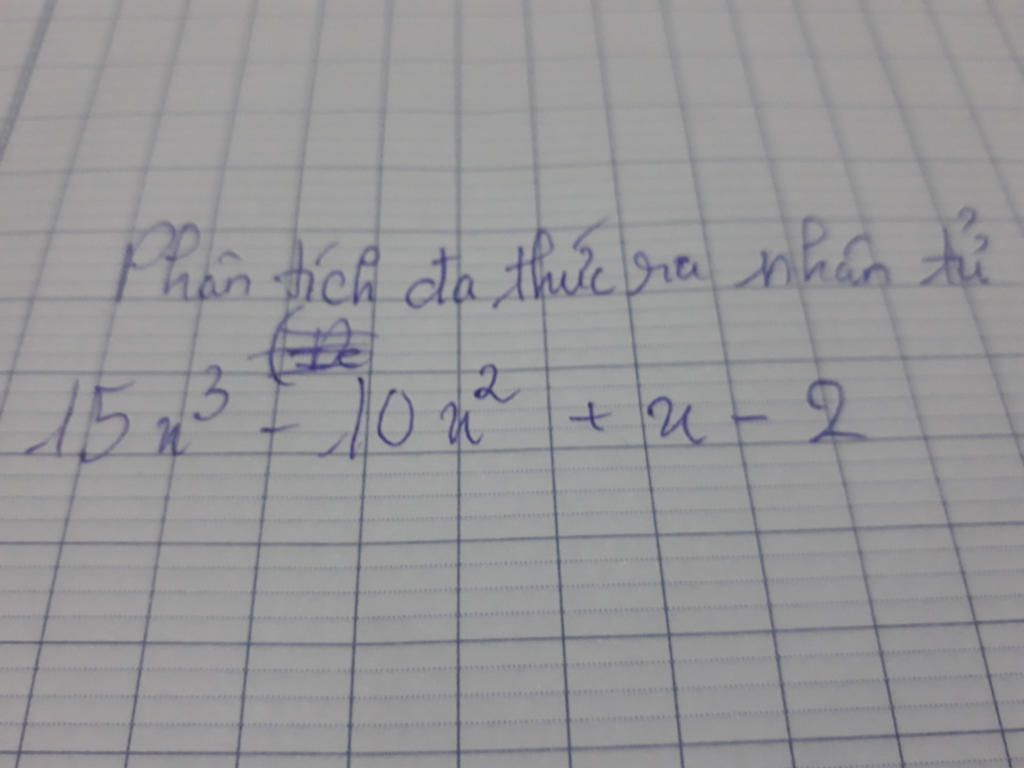 Phân tích đa thức ra nhân tử
15x³ - 10x² + x - 2